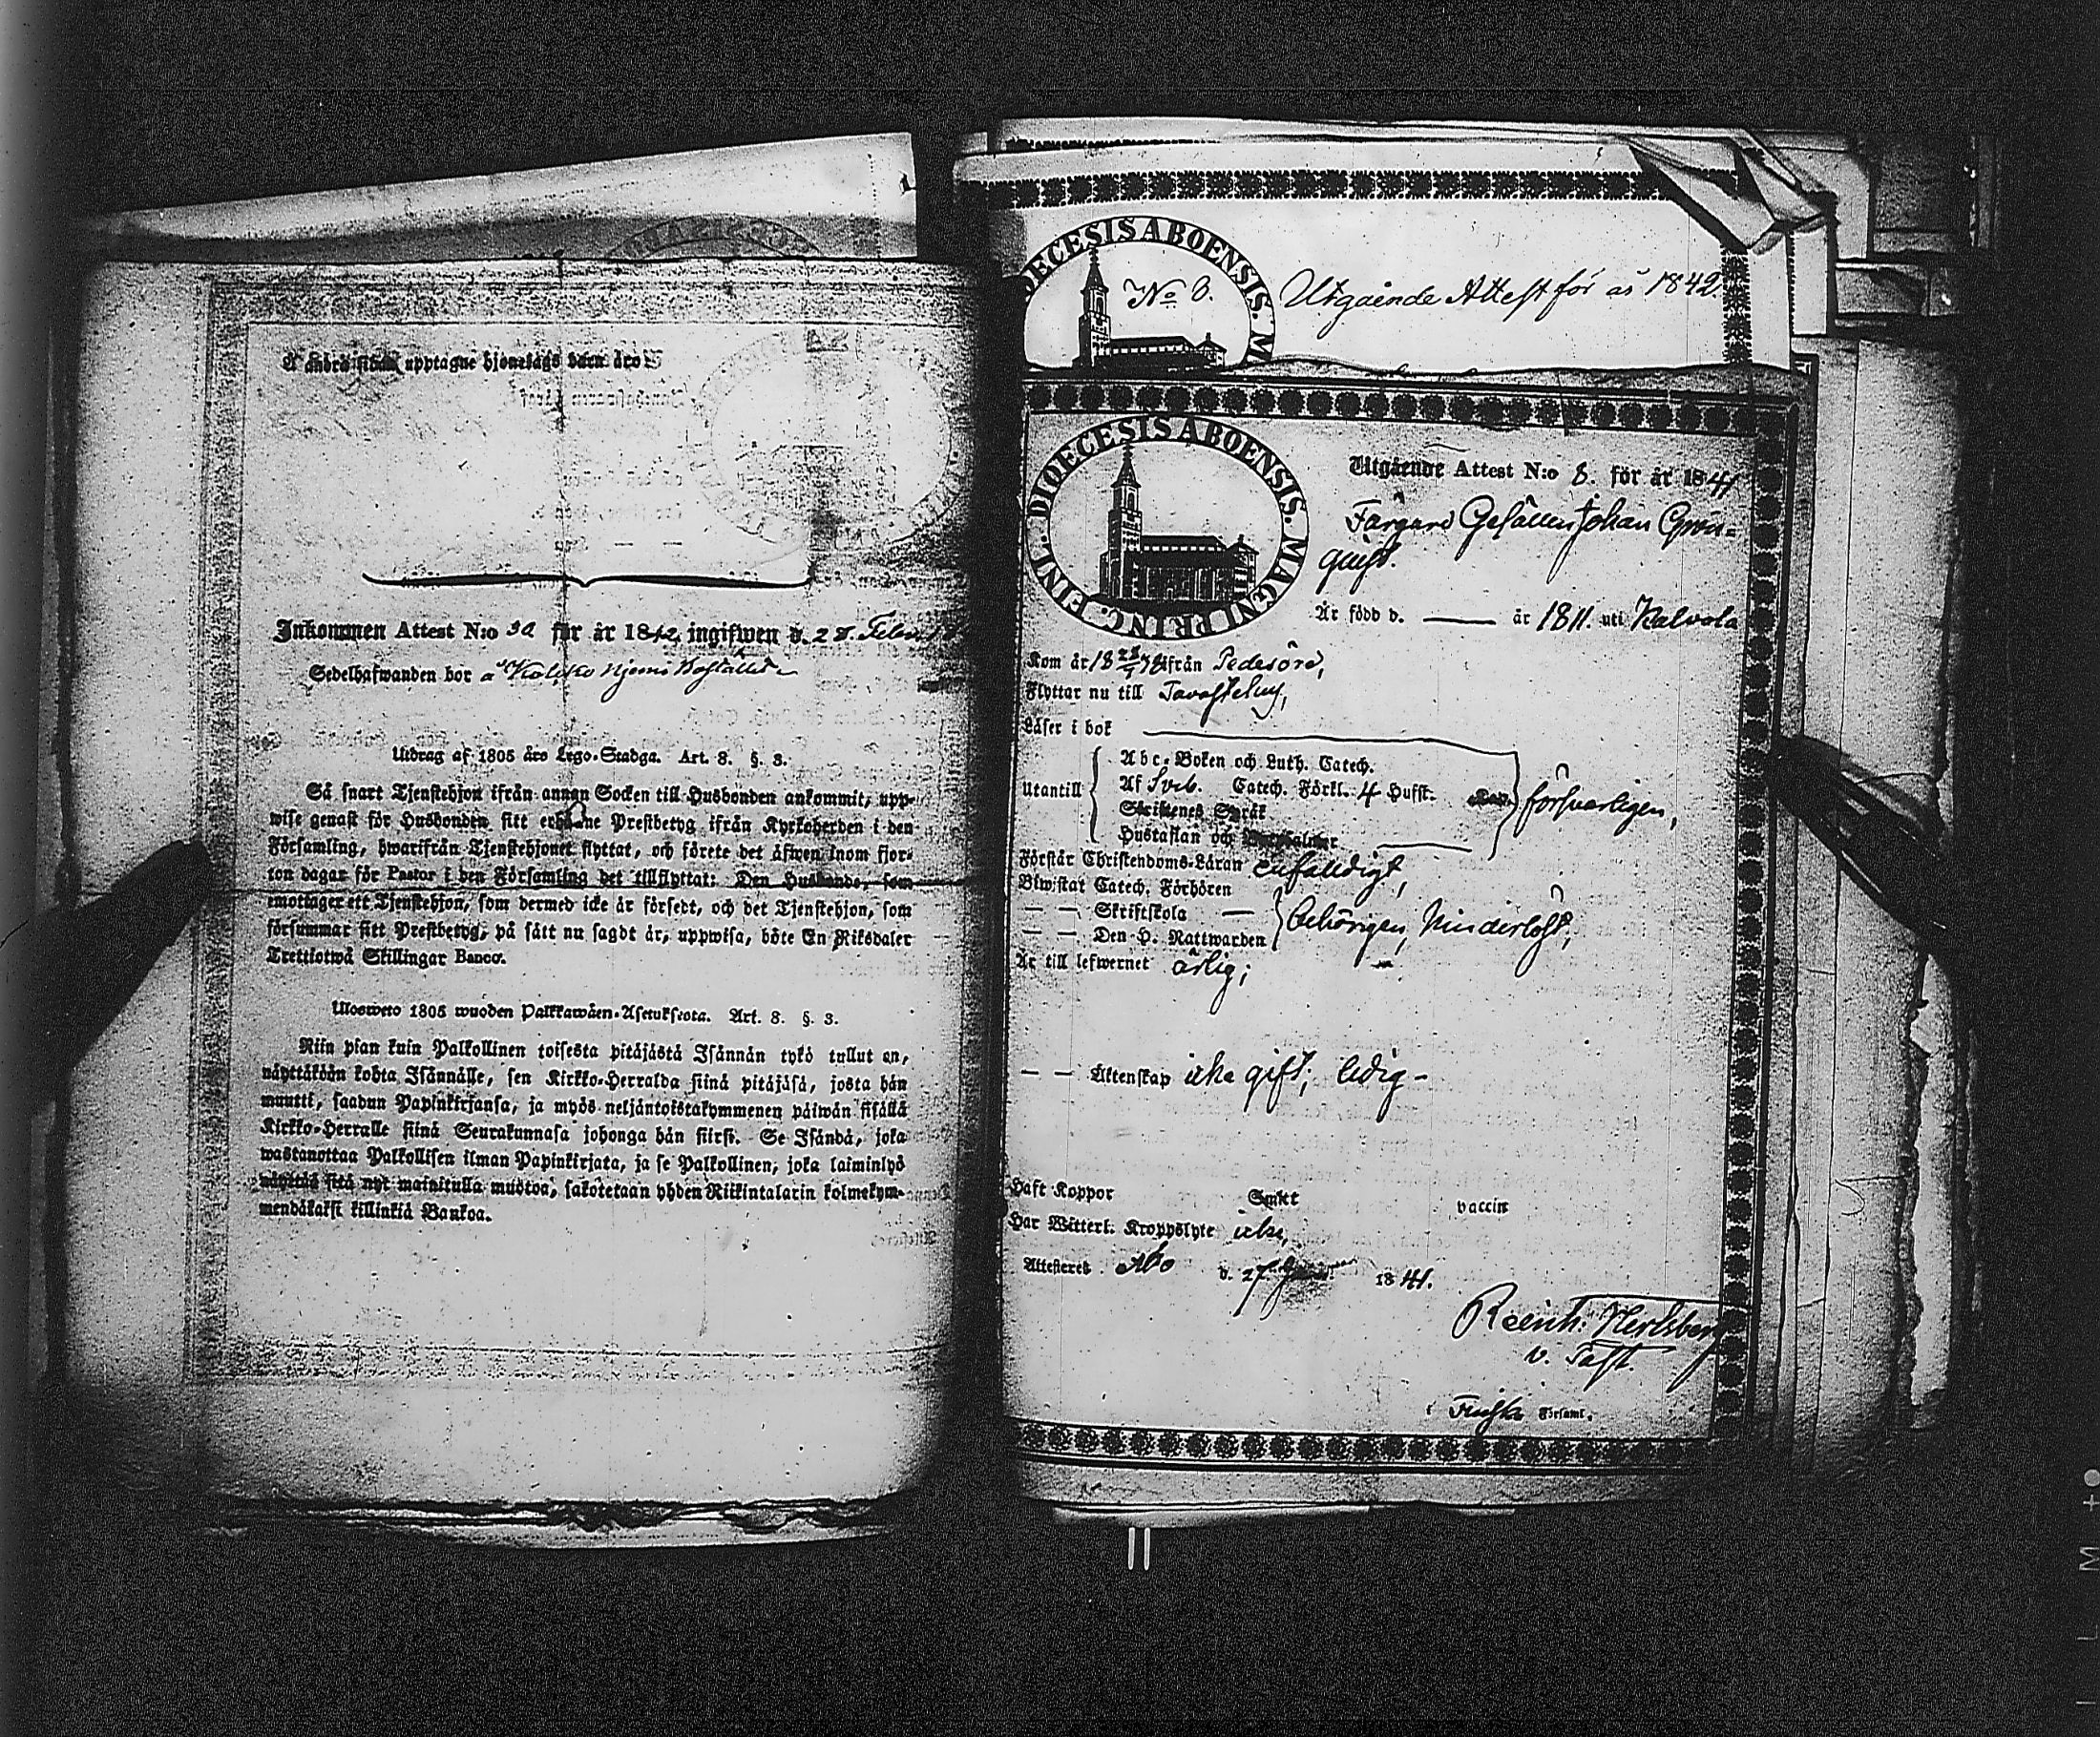 å andra sidan upptagne hjonelags barn äro
Inkommen Attest N:o 32 för år 1842 ingifwen d. 28 Febru
Sedelhafwanden bor å
Utdrag af 1805 års Lego-Stadga. Art. 8. §. 3.
Så snart Tjenstehjon ifrån annan Socken till Husbonden ankommit, upp-
wise genast för Husbonden sitt erhållne Prestbetyg ifrån Kyrkoherden i den
Församling, hwarifrån Tjenstehjonet flyttat, och förete det äfwen inom fjor-
ton dagar för Pastor i den Församling det tillflyttat: Den Husbonde, som
emottager ett Tjenstehjon, som dermed icke är försedt, och det Tjenstehjon, som
försummar sitt Prestbetyg, på sätt nu sagdt är, uppwisa, böte En Riksdaler
Trettiotwå Skillingar Banco.
Ulosweto 1805 wuoden Palkkawäen-Asetuksesta. Art. 8. §. 3.
Niin pian kuin Palkollinen toisesta pitäjästä Isännän tykö tullut on,
näyttäköön kohta Isännälle, sen Kirkko-Herralda siinä pitäjäsä, josta hän
muutti, saadun Papinkirjansa, ja myös neljäntoistakymmenen päiwän sisällä
Kirkko-Herralle siinä Seurakunnasa johonga hän siirsi. Se Isändä, joka
wastanottaa Palkollisen ilman Papinkirjata, ja se Palkollinen, joka laiminlyö
näyttää sitä nyt mainitulla muotoa, sakotetaan yhden Riikintalarin kolmekym-
mendäkaksi killinkiä Bankoa.
DIOECESIS ABOENSIS. M
No 8.
Utgående Attest för år 1842.
DIOECESIS ABOENSIS. MAGNI PRINC. FINL.
Utgående Attest N:o 8. för år 1841
Färgare Gesällen Johan Grön=
quist.
Är född d. — år 1811. uti Kalvola
Kom år 18 ifrån Pedersöre,
Flyttar nu till Tavastehus,
Läser i bok
Utantill
Abc-Boken och Luth. Catech.
Af Sveb. Catech. Förkl. 4 Hufst.
Skriftenes Språk
Hustaflan och
försvarligen,
Förstår Christendoms-Läran enfaldigt,
Biwistat Catech. Förhören
— — Skriftskola —
— — Den H. Nattwarden
behörigen, hinderlöst,
Är till lefwernet ärlig;
— — Äktenskap icke gift; ledig -
Haft Koppor
vaccin
Har Witterl. Kroppslyte icke,
Attesteres Åbo d. 27 1841.
Reinh:
v. Past.
i Finska Församl.